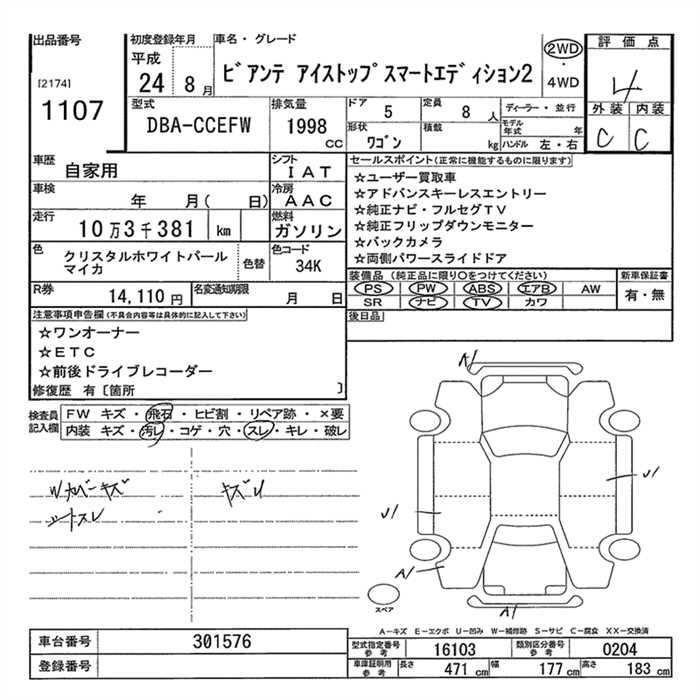 出品番号 初度登録年月 車名・グレード 評価点
[2174] 1107
平成 24 8月
ビアンテ アイストップスマートエディション2
2WD ・ 4WD
4
外装 内装
C C
型式 DBA-CCEFW
排気量 1998 CC
ドア 5 定員 8 人 ディーラー・並行
形状 ワゴン 積載 kg モデル年式 年 ハンドル 左・右
車歴 自家用
シフト IAT
車検 年 月( 日)
冷房 AAC
走行 10万3千381 km
燃料 ガソリン
色 クリスタルホワイトパール
マイカ
色替
色コード 34K
R券 14,110 円 名変通知期限 月 日
セールスポイント(正常に機能するものに限ります)
☆ユーザー買取車
☆アドバンスキーレスエントリー
☆純正ナビ・フルセグTV
☆純正フリップダウンモニター
☆バックカメラ
☆両側パワースライドドア
装備品 (純正品に限り○をつけてください) 新車保証書
PS PW ABS エアB AW 有・無
SR ナビ TV カワ
後日品
注意事項申告欄(不具合内容等は具体的に記入して下さい)
☆ワンオーナー
☆ETC
☆前後ドライブレコーダー
修復歴 有〔箇所 〕
検査員記入欄
FW キズ・飛石・ヒビ割・リペア跡・×要
内装 キズ・汚レ・コゲ・穴・スレ・キレ・破レ
Wカバーキズ キズU
シートスレ
A1
U1
U1
A1
A1
スペア
A-キズ E-エクボ U-凹み W-補修跡 S-サビ C-腐食 XX-交換済
車台番号 301576
登録番号
型式指定番号 参考 16103 類別区分番号 参考 0204
車庫証明用 参考 長さ 471 cm 幅 177 cm 高さ 183 cm